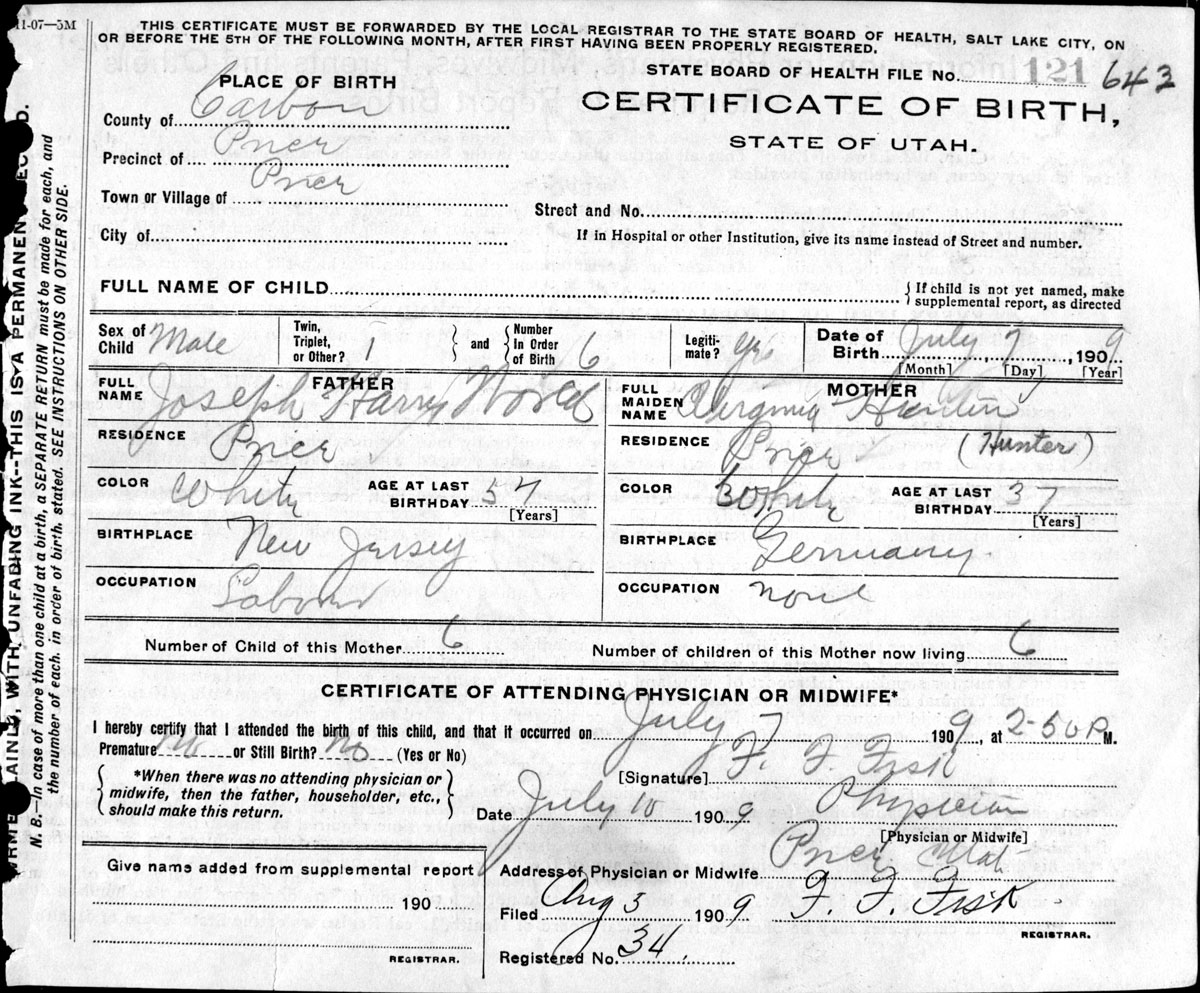 11-07—5M
THIS CERTIFICATE MUST BE FORWARDED BY THE LOCAL REGISTRAR TO THE STATE BOARD OF HEALTH, SALT LAKE CITY, ON
OR BEFORE THE 5TH OF THE FOLLOWING MONTH, AFTER FIRST HAVING BEEN PROPERLY REGISTERED.
STATE BOARD OF HEALTH FILE No. 121 643
PLACE OF BIRTH
CERTIFICATE OF BIRTH,
STATE OF UTAH.
County of Carbon
Precinct of Price
Town or Village of Price
Street and No.
City of
If in Hospital or other Institution, give its name instead of Street and number.
FULL NAME OF CHILD
{ If child is not yet named, make
supplemental report, as directed
Sex of Child Male
Twin, Triplet, or Other? 1 } and { Number In Order of Birth 6
Legiti- mate? Yes
Date of Birth July 7, 1909
[Month] [Day] [Year]
FATHER
FULL NAME Joseph Harry
RESIDENCE Price
COLOR White
AGE AT LAST BIRTHDAY 57
[Years]
BIRTHPLACE New Jersey
OCCUPATION Labour
MOTHER
FULL MAIDEN NAME Virginia
RESIDENCE Price (Hunter)
COLOR White
AGE AT LAST BIRTHDAY 37
[Years]
BIRTHPLACE Germany
OCCUPATION None
Number of Child of this Mother 6
Number of children of this Mother now living 6
CERTIFICATE OF ATTENDING PHYSICIAN OR MIDWIFE*
I hereby certify that I attended the birth of this child, and that it occurred on July 7 1909, at 2-50 P.M.
Premature no or Still Birth? no (Yes or No)
{ *When there was no attending physician or
midwife, then the father, householder, etc.,
should make this return. }
[Signature] F. F. Fisk
Date July 10 1909 Physician
[Physician or Midwife]
Address of Physician or Midwife Price Utah.
Filed Aug 3 1909 F. F. Fisk
REGISTRAR.
Registered No. 34.
Give name added from supplemental report
190
REGISTRAR.
WITH UNFADING INK--THIS IS A PERMANENT
N. B.—In case of more than one child at a birth, a SEPARATE RETURN must be made for each, and
the number of each. in order of birth. stated. SEE INSTRUCTIONS ON OTHER SIDE.